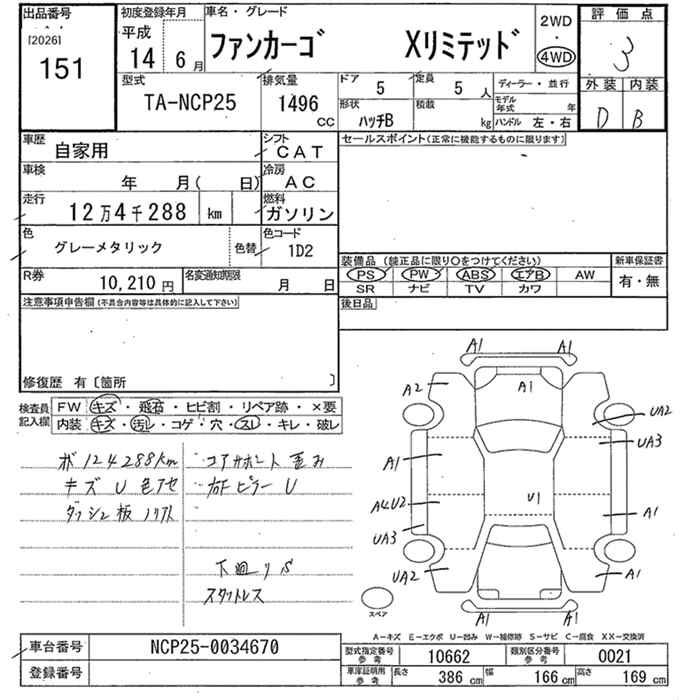 出品番号
[2026]
151
初度登録年月
平成
14年 6月
車名・グレード
ファンカーゴ Xリミテッド
2WD
・
4WD
評価点
3
外装 内装
D B
型式
TA-NCP25
排気量
1496
CC
ドア 5
定員 5 人
形状 ハッチB
積載 kg
ディーラー・並行
モデル年式 年
ハンドル 左・右
車歴 自家用
シフト CAT
車検 年 月( 日)
冷房 AC
走行 12万4千288 km
燃料 ガソリン
色 グレーメタリック 色替
色コード 1D2
R券 10,210円
名変通知期限 月 日
セールスポイント(正常に機能するものに限ります)
装備品(純正品に限り○をつけてください)
PS PW ABS エアB AW
SR ナビ TV カワ
新車保証書
有・無
後日品
注意事項申告欄(不具合内容等は具体的に記入して下さい)
修復歴 有〔箇所 〕
検査員記入欄
FW キズ・飛石・ヒビ割・リペア跡・×要
内装 キズ・汚レ・コゲ・穴・スレ・キレ・破レ
ボ 124288km
キズ U 色アセ
ダッシュ板 ノリアト
コアサポート 歪み
右Fピラー U
下廻り S
スタットレス
A1 A1
A2 A1
UA2
UA3
A1
A4U2 U1
A1
UA3
UA2 A1
A1 A1
スペア
A―キズ E―エクボ U―凹み W―補修跡 S―サビ C―腐食 XX―交換済
車台番号 NCP25-0034670
登録番号
型式指定番号 参考 10662
類別区分番号 参考 0021
車庫証明用 参考 長さ 386 cm 幅 166 cm 高さ 169 cm